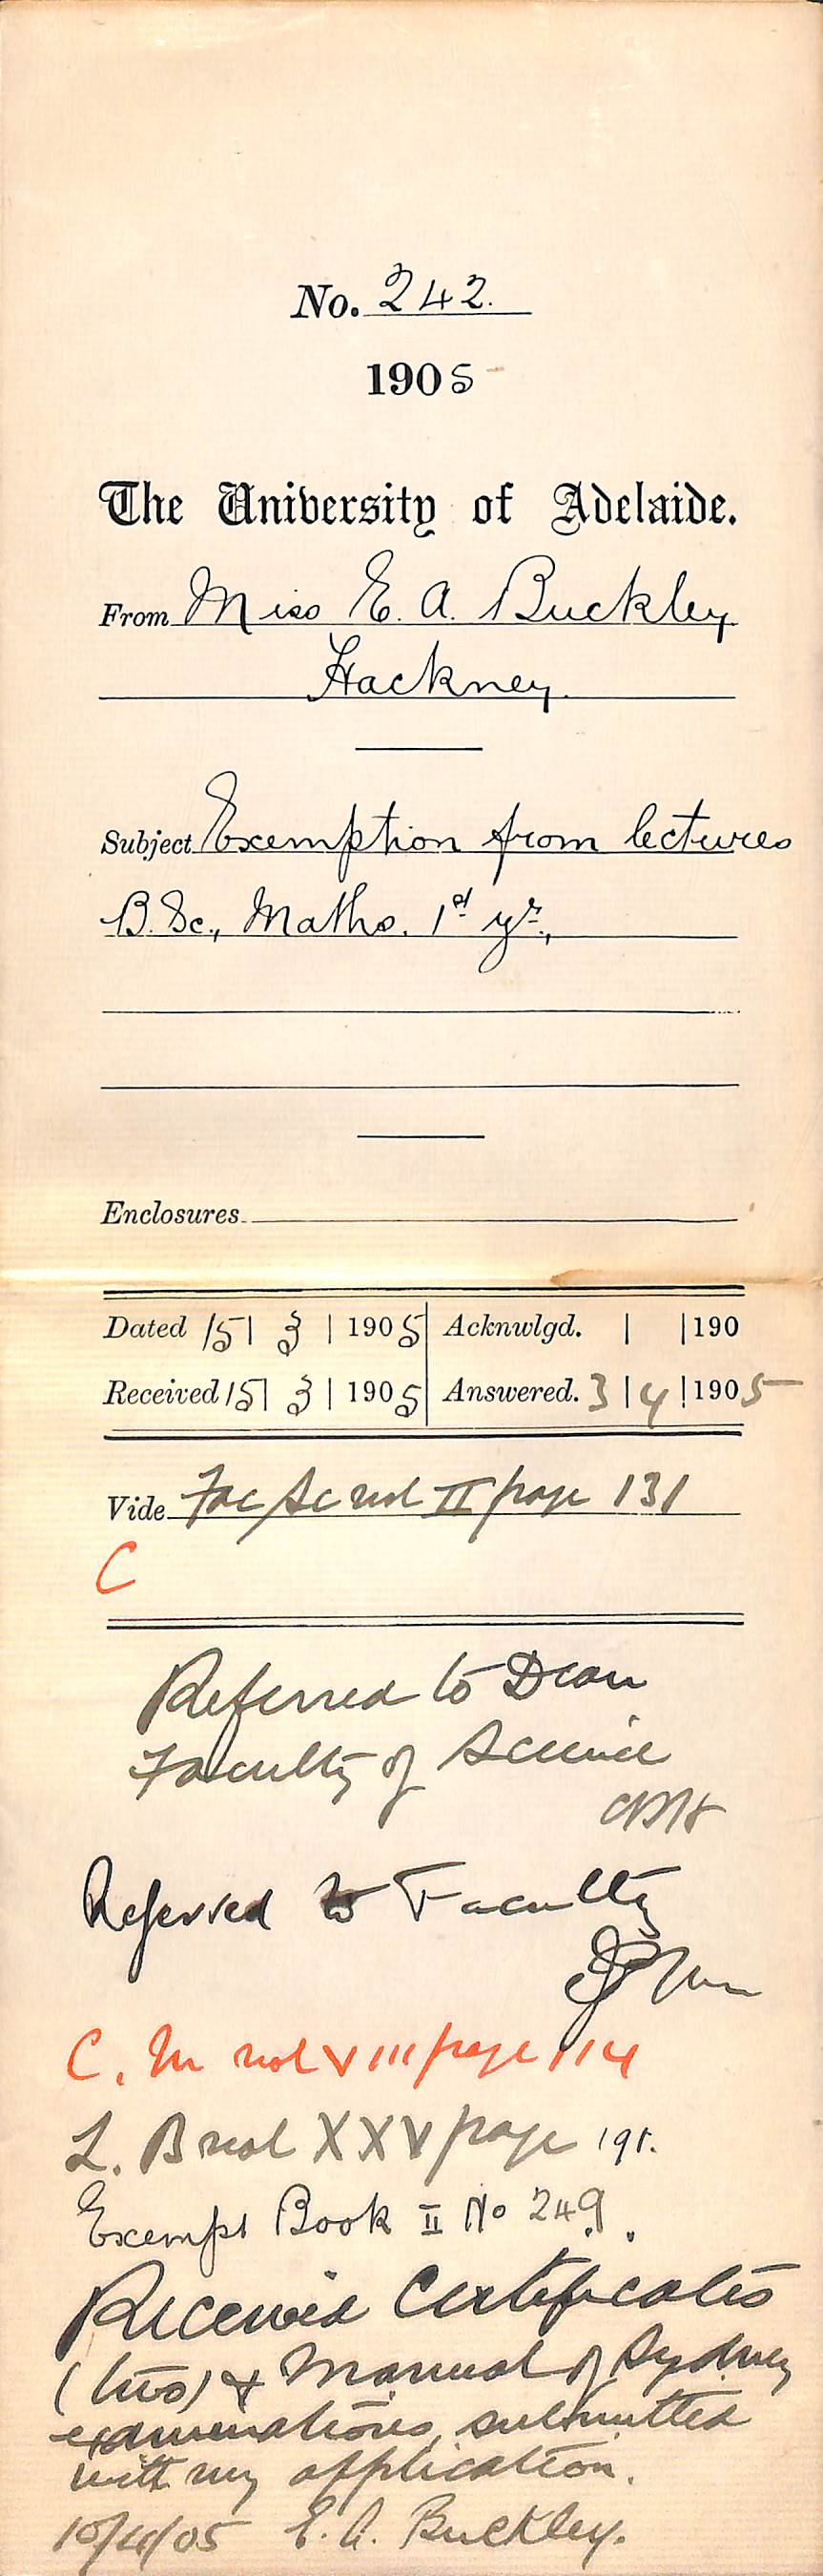 No. 242.
1905
The University of Adelaide.
From Miss E. A. Buckley
Hackney.
Subject Exemption from lectures
B.Sc., Maths. 1st yr.,
Enclosures
Dated 15| 3 | 1905 Acknwlgd. | |190
Received 15| 3 | 1905 Answered. 3 | 4 | 1905
Vide Fac Sc vol II page 131
C
Referred to Dean
Faculty of Science
Referred to Faculty
C. M vol VIII page 114
L. B vol XXV page 191.
Exempt Book II No 249.
Received Certificates
(two) & Manual of Sydney
examinations submitted
with my application.
10/4/05 E. A. Buckley.